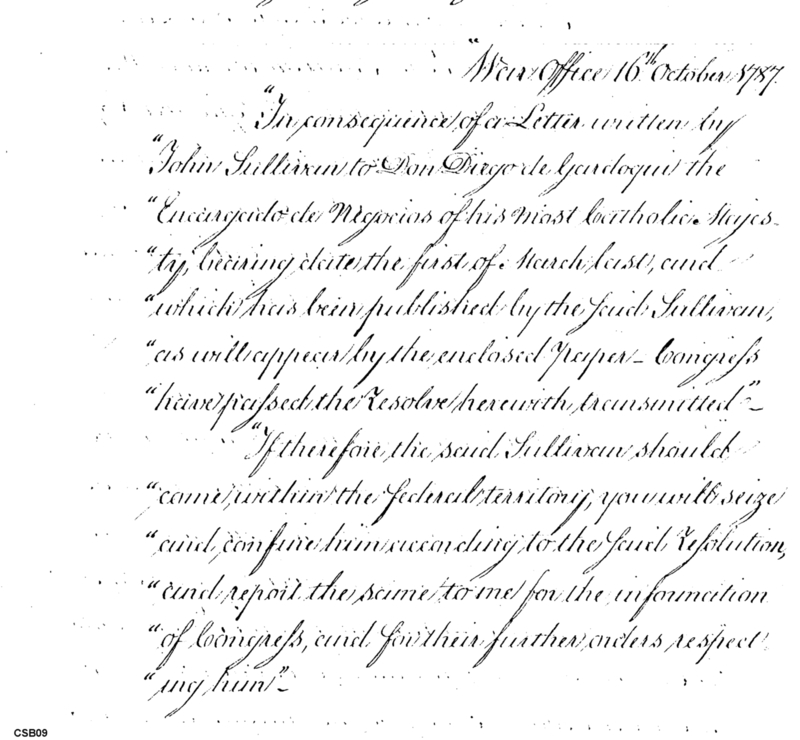 "War Office 16th October 1787.
"In consequence of a Letter written by
"John Sullivan to Don Diego de Gardoqui the
"Encargado de Negocios of his most Catholic Majes-
"ty, bearing date the first of March last, and
"which has been published by the said Sullivan,
"as will appear by the enclosed Paper_ Congress
"have passed the Resolve herewith transmitted"_
"If therefore the said Sullivan should
"come within the federal territory, you will seize
"and confine him according to the said Resolution,
"and report the same to me for the information
"of Congress, and for their further orders respect
"ing him"_
CSB09